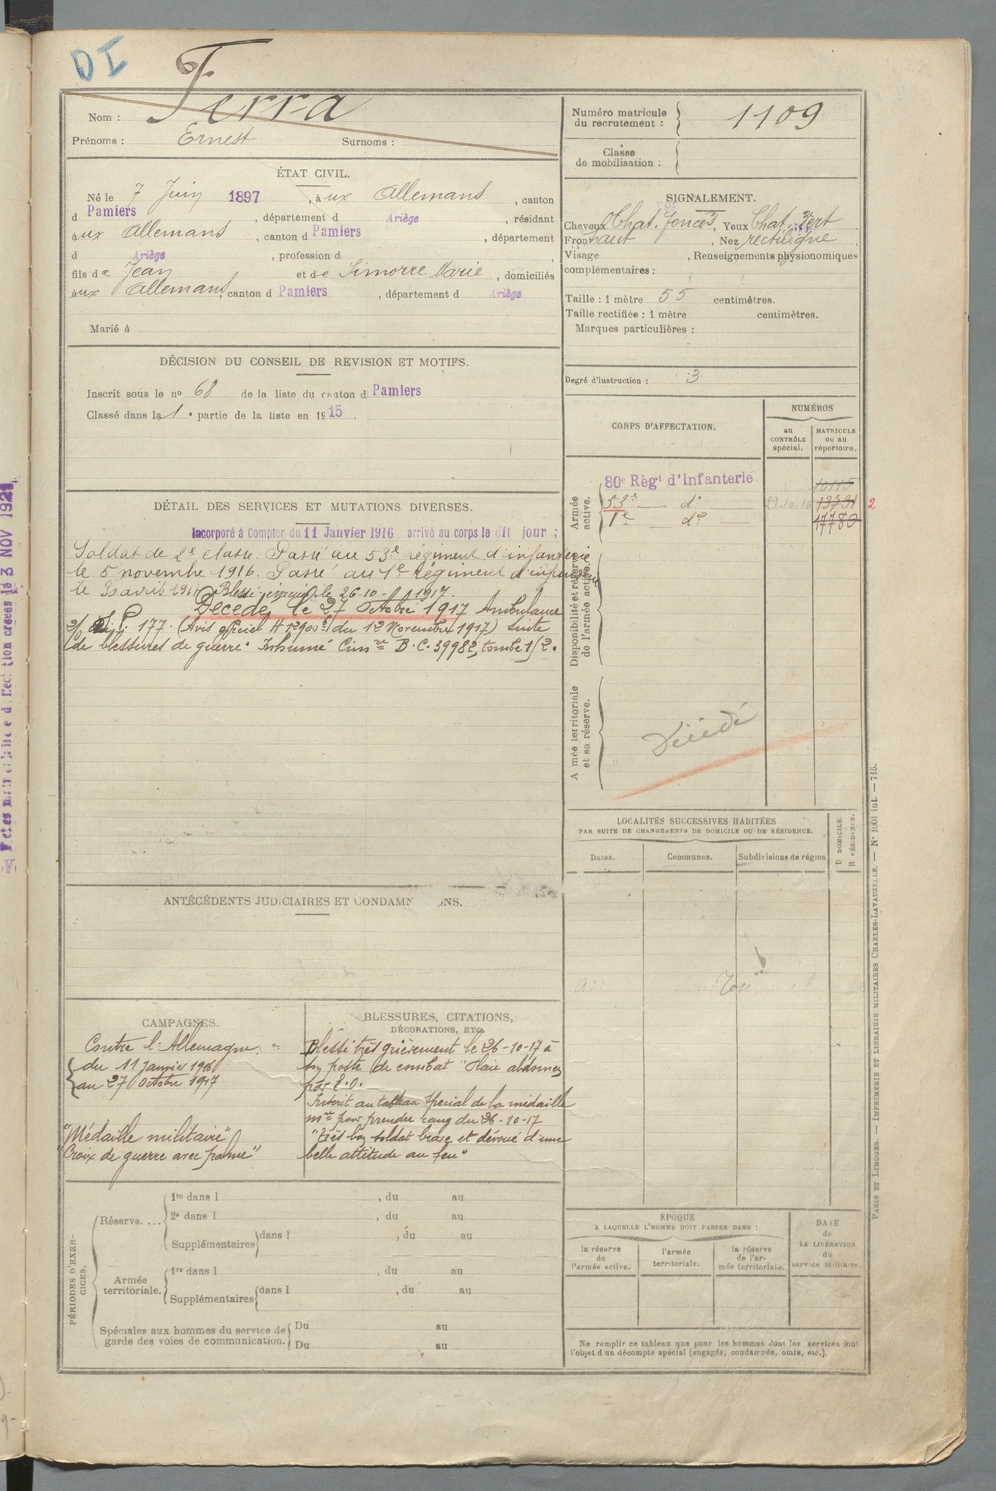 DI
Nom : Ferra
Prénoms : Ernest Surnoms :
Numéro matricule
du recrutement : 1109
Classe
de mobilisation :
ÉTAT CIVIL.
Né le 7 Juin 1897, à ux Allemans, canton
d Pamiers, département d Ariège, résidant
à ux Allemans, canton d Pamiers, département
d Ariège, profession d
fils de Jean et de Simorre Marie, domiciliés
à ux Allemans, canton d Pamiers, département d Ariège
Marié à
SIGNALEMENT.
Cheveux Chat. foncés, Yeux Chat. Vert
Front haut, Nez rectiligne
Visage, Renseignements physionomiques
complémentaires :
Taille : 1 mètre 55 centimètres.
Taille rectifiée : 1 mètre centimètres.
Marques particulières :
Degré d'instruction : 3
DÉCISION DU CONSEIL DE REVISION ET MOTIFS.
Inscrit sous le no 68 de la liste du canton d Pamiers
Classé dans la 1e partie de la liste en 1915
CORPS D'AFFECTATION.
NUMÉROS
au
CONTRÔLE
spécial.
MATRICULE
ou au
répertoire.
Armée
active.
80e Régt d'Infanterie 10115
53e — do 13731 2
1e — do 17780
Disponibilité et réserve
de l'armée active.
Armée territoriale
et sa réserve.
Décédé
DÉTAIL DES SERVICES ET MUTATIONS DIVERSES.
Incorporé à Compter du 11 Janvier 1916 arrivé au corps le dit jour ;
Soldat de 2e classe. Passé au 53e régiment d'infanterie
le 5 novembre 1916. Passé au 1e Régiment d'infanterie
le 30 avril 1917. Blessé le 26-10-1917.
Décédé, le 27 Octobre 1917 Ambulance
S.P. 177. (Avis officiel du 12 Novembre 1917) Suite
de blessures de guerre. Inhumé Cimre B.C. 39982, tombe 1/2.
LOCALITÉS SUCCESSIVES HABITÉES
PAR SUITE DE CHANGEMENTS DE DOMICILE OU DE RÉSIDENCE.
Dates. Communes. Subdivisions de région
D DOMICILE.
R RÉSIDENCE.
ANTÉCÉDENTS JUDICIAIRES ET CONDAMNATIONS.
CAMPAGNES.
Contre l'Allemagne.
du 11 Janvier 1916
au 27 Octobre 1917
"Médaille militaire"
"Croix de guerre avec palme"
BLESSURES, CITATIONS,
DÉCORATIONS, ETC.
Blessé très grièvement le 26-10-17 à
son poste de combat
par E.O.
Inscrit au tableau spécial de la médaille
mre pour prendre rang du 26-10-17
"Très bon soldat brave et dévoué d'une
belle attitude au feu"
PÉRIODES D'EXERCICES.
Réserve....
1re dans l , du au
2e dans l , du au
Supplémentaires dans l , du au
Armée
territoriale.
1re dans l , du au
Supplémentaires dans l , du au
Spéciales aux hommes du service de
garde des voies de communication.
Du au
Du au
EPOQUE
A LAQUELLE L'HOMME DOIT PASSER DANS :
la réserve
de
l'armée active.
l'armée
territoriale.
la réserve
de l'ar-
mée territoriale.
DATE
de
LA LIBÉRATION
du
service militaire.
Ne remplir ce tableau que pour les hommes dont les services font
l'objet d'un décompte spécial (engagés, condamnés, omis, etc.).
PARIS ET LIMOGES. — IMPRIMERIE ET LIBRAIRIE MILITAIRES CHARLES-LAVAUZELLE. — No 1001 int. — 715.